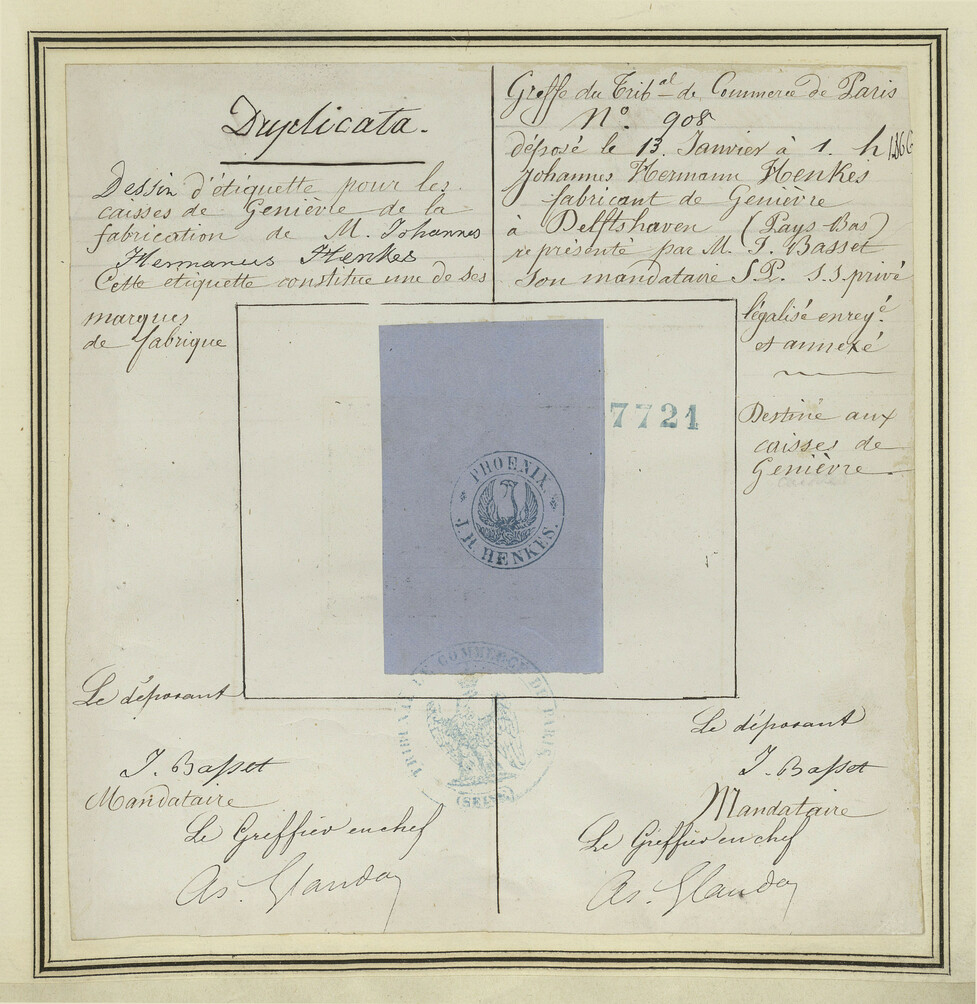 Duplicata.
Dessin d'étiquette pour les
caisses de Genièvre de la
fabrication de M. Johannes
Hermanus Henkes
Cette etiquette constitue une de ses
marques
de fabrique
Greffe du Trib<sup>al</sup> de Commerce de Paris
N°. 908
déposé le 13 Janvier à 1. h 1866
Johannes Hermann Henkes
fabricant de Genièvre
à Delftshaven (Pays-Bas)
représenté par M. J. Basset
son mandataire S.P. S.S. privé
légalisé enreg<sup>é</sup>
et annexé
Destiné aux
caisses de
Genièvre
7721
PHOENIX
J.H. HENKES.
TRIBUNAL DE COMMERCE DE PARIS
(SEINE)
Le déposant
J. Basset
Mandataire
Le Greffier en chef
As. Glanday
Le déposant
J. Basset
Mandataire
Le Greffier en chef
As. Glanday